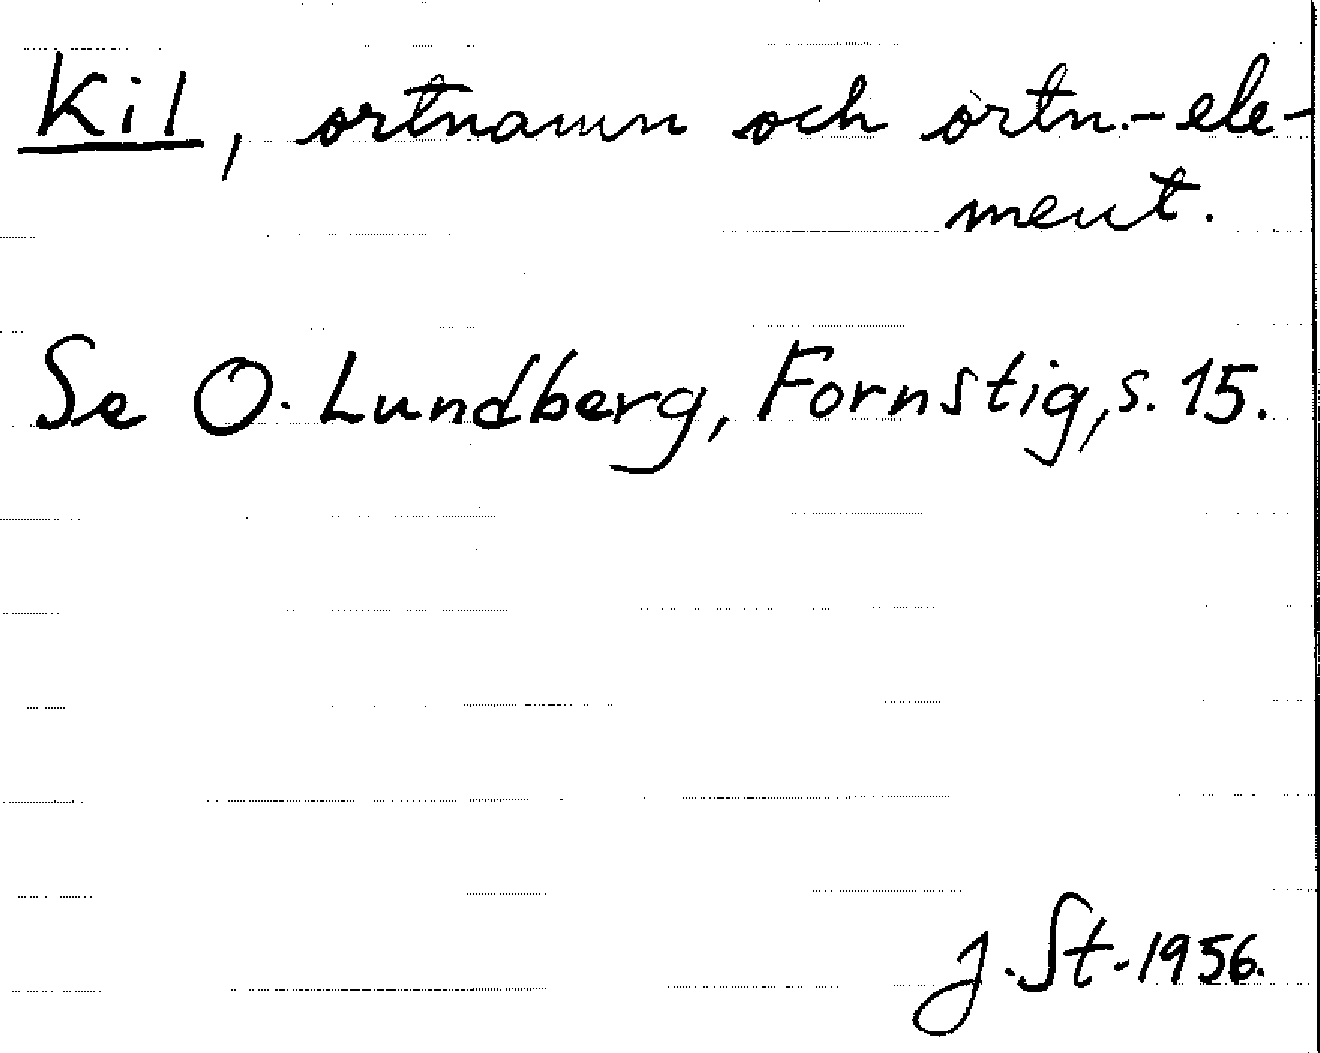 Kil, ortnamn och ortn.-ele-
ment.
Se O. Lundberg, Fornstig, s. 15.
J. St. 1956.